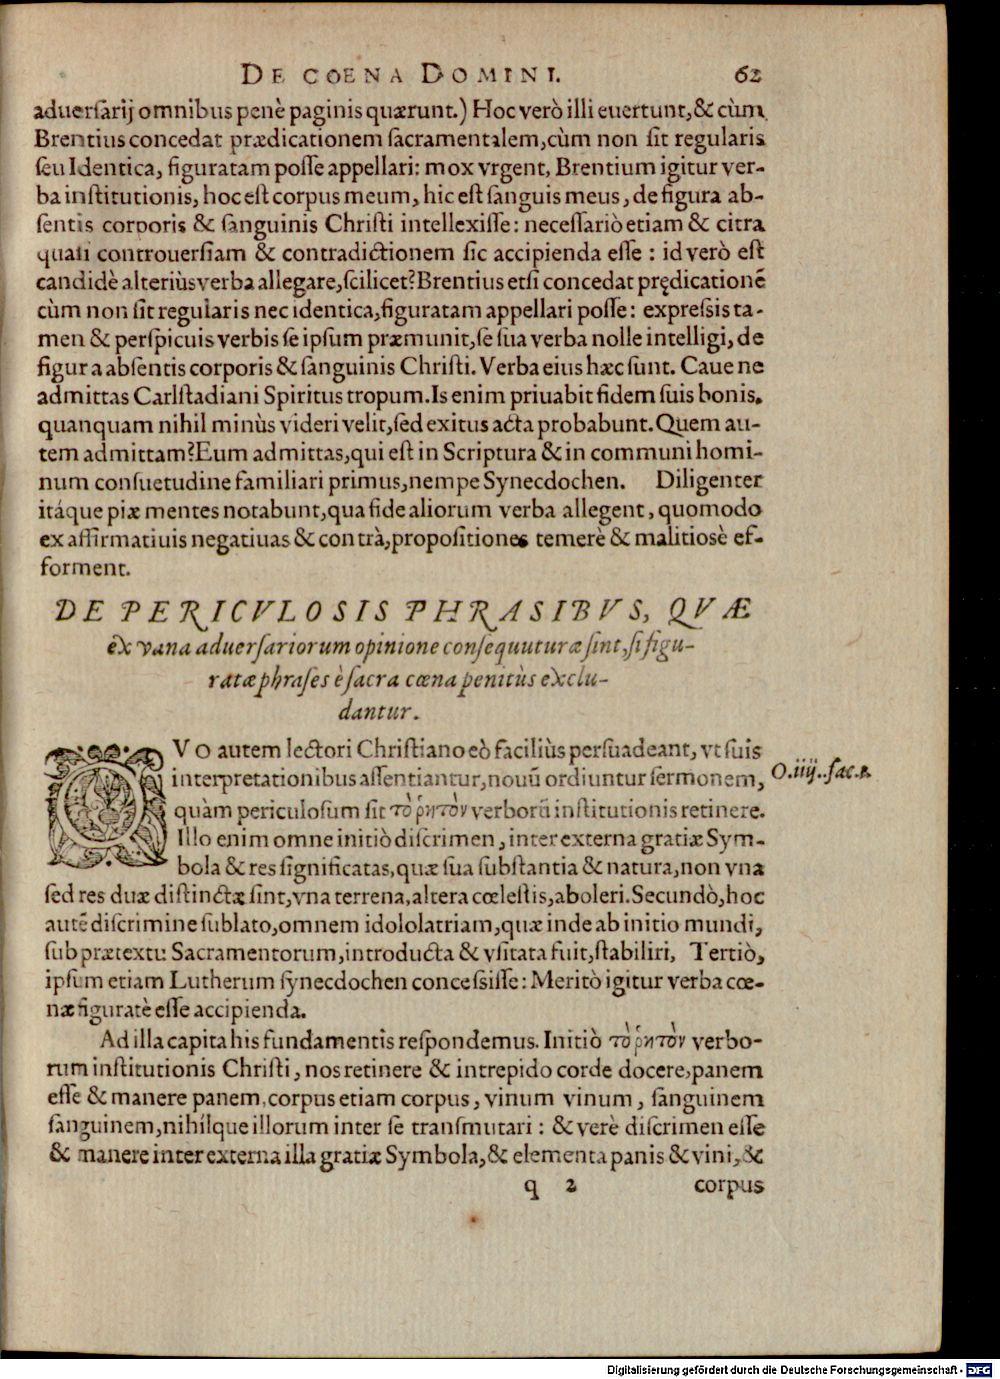 DE COENA DOMINI. 62
aduersarij omnibus penè paginis quærunt.) Hoc verò illi euertunt, & cùm
Brentius concedat prædicationem sacramentalem, cùm non sit regularis
seu Identica, figuratam posse appellari: mox vrgent, Brentium igitur ver-
ba institutionis, hoc est corpus meum, hic est sanguis meus, de figura ab-
sentis corporis & sanguinis Christi intellexisse: necessariò etiam & citra
quasi controuersiam & contradictionem sic accipienda esse: id verò est
candidè alteriùs verba allegare, scilicet? Brentius etsi concedat prędicationē
cùm non sit regularis nec identica, figuratam appellari posse: expressis ta-
men & perspicuis verbis se ipsum præmunit, se sua verba nolle intelligi, de
figura absentis corporis & sanguinis Christi. Verba eius hæc sunt. Caue ne
admittas Carlstadiani Spiritus tropum. Is enim priuabit fidem suis bonis.
quanquam nihil minùs videri velit, sed exitus acta probabunt. Quem au-
tem admittam? Eum admittas, qui est in Scriptura & in communi homi-
num consuetudine familiari primus, nempe Synecdochen. Diligenter
itáque piæ mentes notabunt, qua fide aliorum verba allegent, quomodo
ex affirmatiuis negatiuas & contrà, propositiones temerè & malitiosè ef-
forment.
DE PERICVLOSIS PHRASIBVS, QVÆ
ex vana aduersariorum opinione consequuturæ sint, si figu-
ratæ phrases è sacra cœna penitùs exclu-
dantur.
QVO autem lectori Christiano eò faciliùs persuadeant, vt suis
interpretationibus assentiantur, nouū ordiuntur sermonem, O.iiij.. fac.2.
quàm periculosum sit τὸ ῥητὸν verborū institutionis retinere.
Illo enim omne initiò discrimen, inter externa gratiæ Sym-
bola & res significatas, quæ sua substantia & natura, non vna
sed res duæ distinctæ sint, vna terrena, altera cœlestis, aboleri. Secundò, hoc
autē discrimine sublato, omnem idololatriam, quæ inde ab initio mundi,
sub prætextu Sacramentorum, introducta & vsitata fuit, stabiliri, Tertiò,
ipsum etiam Lutherum synecdochen concessisse: Meritò igitur verba cœ-
næ figuratè esse accipienda.
Ad illa capita his fundamentis respondemus. Initiò τὸ ῥητὸν verbo-
rum institutionis Christi, nos retinere & intrepido corde docere, panem
esse & manere panem, corpus etiam corpus, vinum vinum, sanguinem
sanguinem, nihilque illorum inter se transmutari: & verè discrimen esse
& manere inter externa illa gratiæ Symbola, & elementa panis & vini, &
q 2 corpus
Digitalisierung gefördert durch die Deutsche Forschungsgemeinschaft - DFG